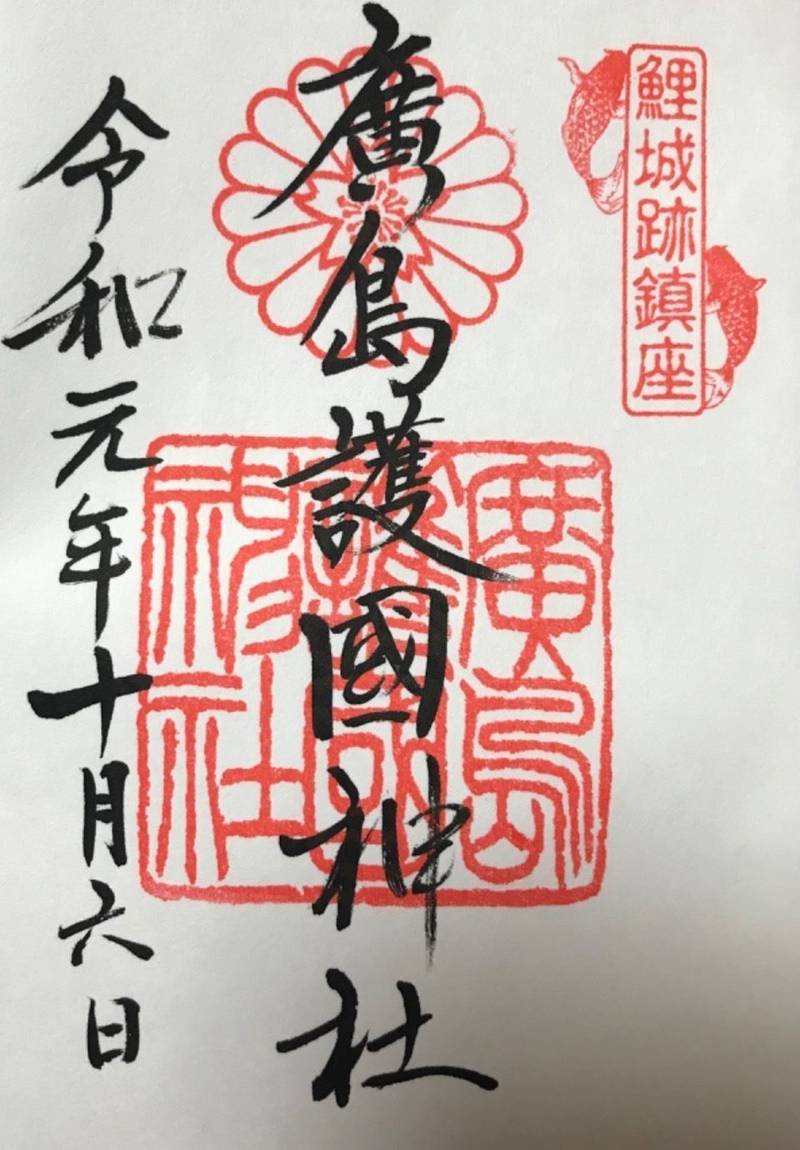 鯉城跡鎮座
廣島護國神社
廣島護國神社
令和元年十月六日